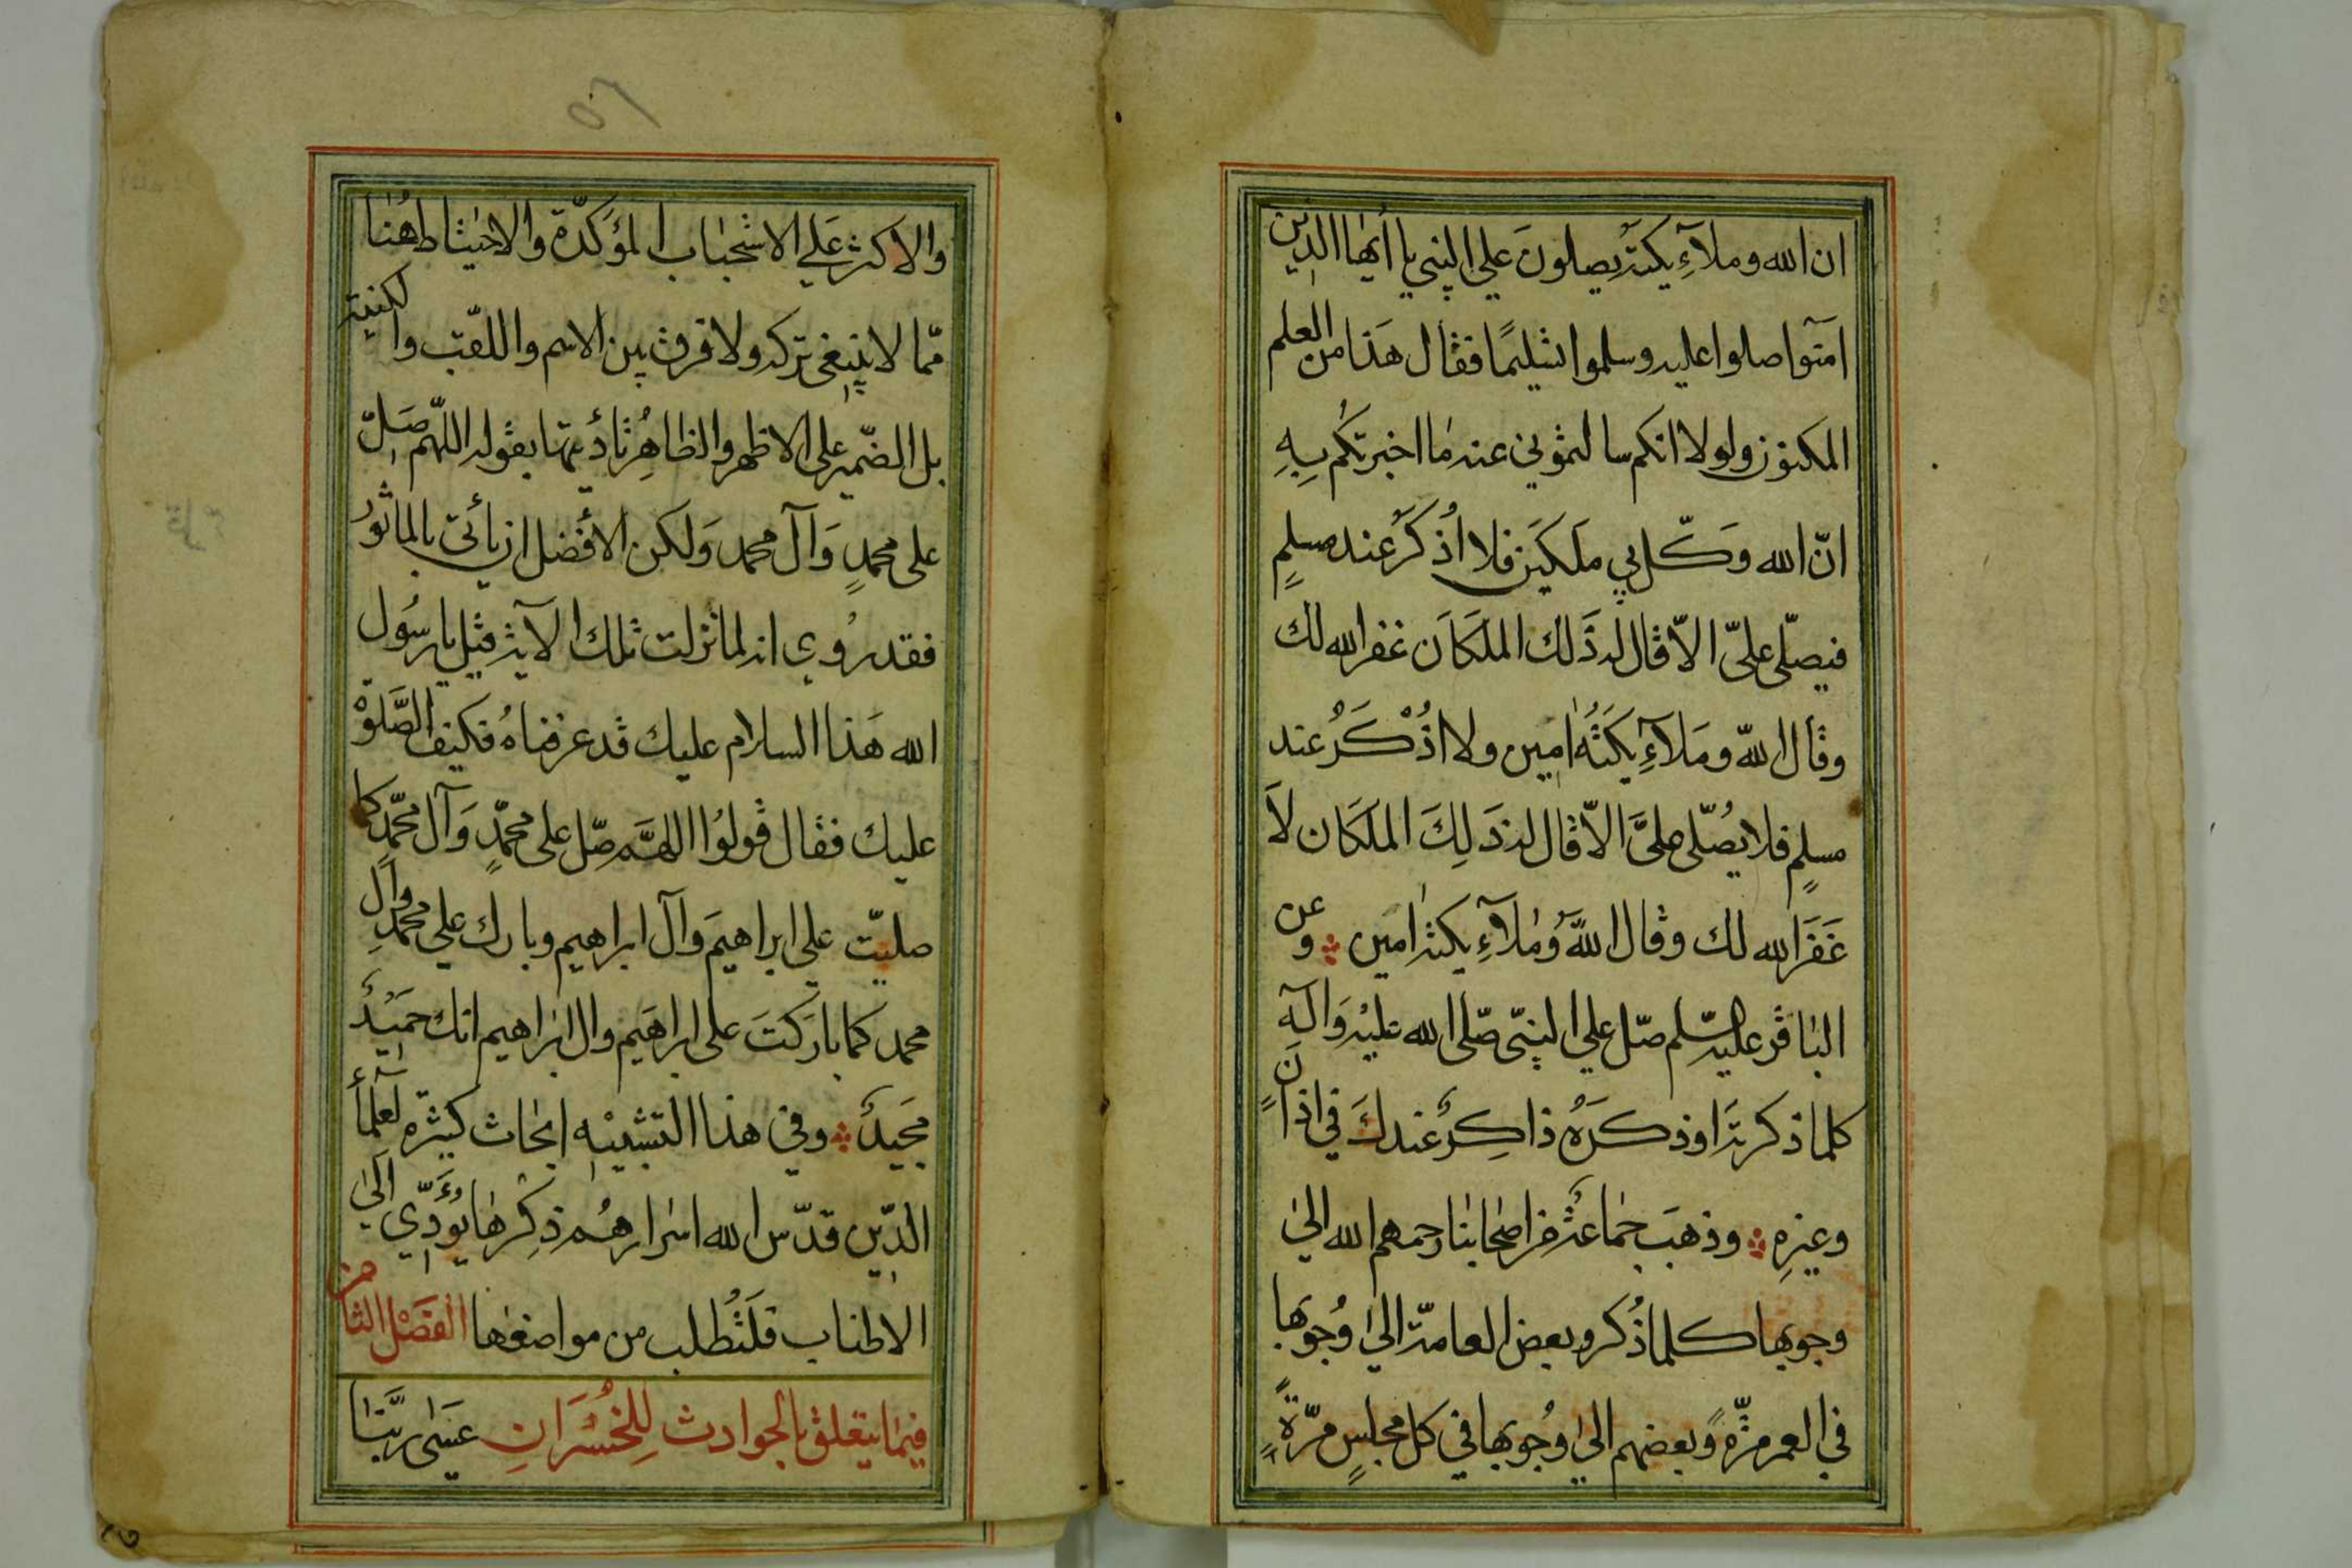 ان الله وملآءِيكته يصلونَ علي النبي يا أيها الذين
امنوا صلوا عليه وسلموا تسليمًا فقال هَذا من العلم
المكنون ولولا انكم سالتموني عنه ما اخبرتكم بِهِ
انّ الله وَكّل بي ملَكَين فلا اُذكَر عند مسلمٍ
فيصلّى علىّ الّا قال له ذَلك الملَكَان غفر الله لك
وقال اللّه ومَلآءِيكَتُهُ امين ولا اذْكَرُ عند
مسلمٍ فلا يصُلّى علىَّ الّا قال له ذَلِكَ الملَكَان لاَ
غَفَرَ الله لك وقال اللَّهُ وَملآءِيكته امين وعن
الباقر عليه السّلم صّل علي النبىّ صلّى الله عليه وَآلهِ
كلما ذكرته او ذكَرَهُ ذاكِرٌ عندكَ في اذانٍ
وغيرهِ وذهبَ جماعَة من اصحابنا رحمهم الله الىٰ
وجوبها كلما ذُكر وبعض العامّة الىٰ وُجوبها
في العمر مرّةً وبعضهم الىٰ وُجوبها في كل مجلسٍ مرّةً
٢٥
والاكثر عَلي الاستحباب المؤكدّة والاحتياط هُنٰا
مّما لا ينبغى تركه ولا فرق بين الاسم واللقّب والكنيته
بل الضّمير على الاظهر والظاهِر تأديتها بقوله اللهّم صَلّ
على محمدٍ وَآل محمد وَلكن الأفَضل ان يأتى بالماثور
فقد رُوي انه لما نزلت تلك الآية قيل يا رسُول
الله هَذا السلام عليك قد عرفناهُ فكيف الصَّلوةُ
عليك فقال قولوُا اللهَّم صّل على محمّدٍ وَآل محّمدٍ كما
صليتّ علي ابراهيمَ وآل ابراهيم وبارك علي محمدٍ وآلِ
محمد كما بارَكتَ على ابراهَيم وال ابراهيم انك حميَدٌ
مجَيدٌ وفي هذا التشبيْه ابحٰاث كثيرّة لعلمآءِ
الدّين قدّس الله اسرارهُم ذِكرها يؤدّي الىٰ
الاطناب فلَتُطلب من مواضعهٰا الفصْل الثامن
فيمٰا يتعلق بالحوادث لِلخُسْرَانِ عَسٰى رَبَّنٰا